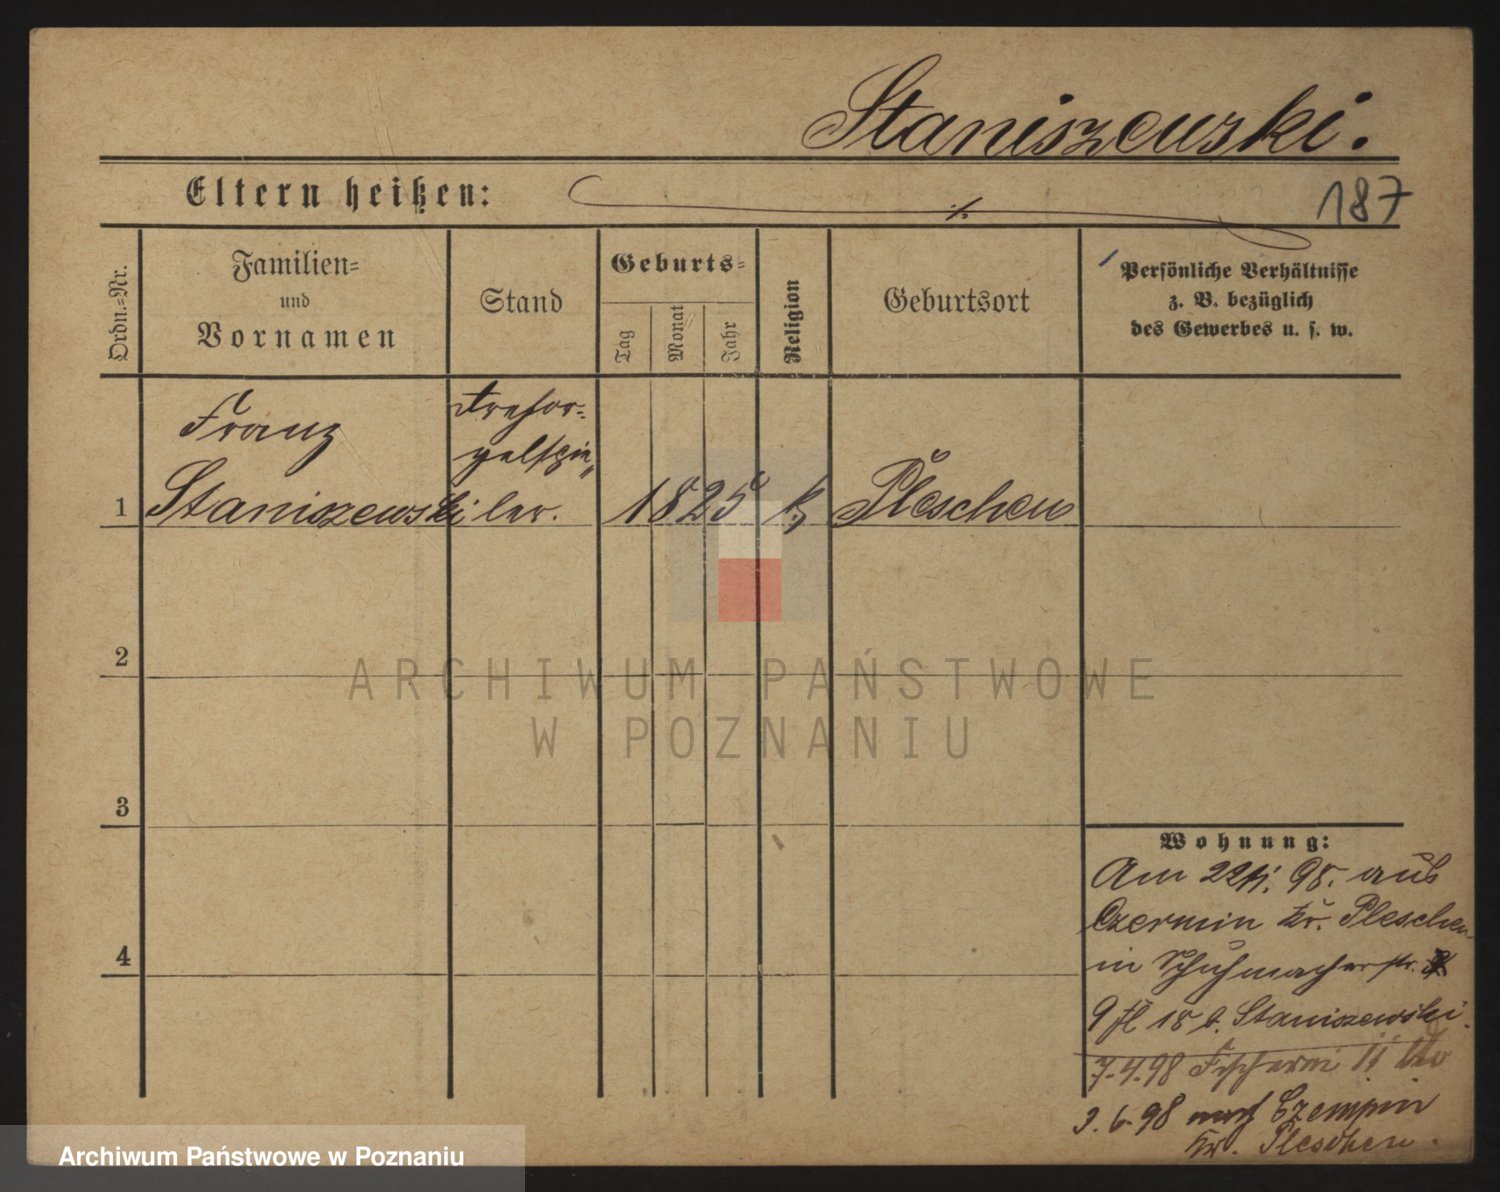 Staniszewski.
Eltern heißen:
./.
187
Ordn.=Nr.
Familien=
und
Vornamen
Stand
Geburts=
Tag
Monat
Jahr
Religion
Geburtsort
Persönliche Verhältnisse
z. B. bezüglich
des Gewerbes u. s. w.
Franz
Drehor-
gelspie„
1 Staniszewski ler. 1825 k. Pleschen
2
3
4
Wohnung:
Am 98. aus
Czermin Kr. Pleschen
in Schuhmacherstr.
9 18 b. Staniszewski.
7.4.98 Fischerei 11
3.6.98 nach Czempin
Kr. Pleschen.
ARCHIWUM PAŃSTWOWE
W POZNANIU
Archiwum Państwowe w Poznaniu